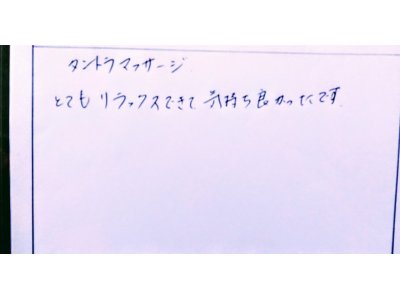 タントラマッサージ
とてもリラックスできて気持ち良かったです。